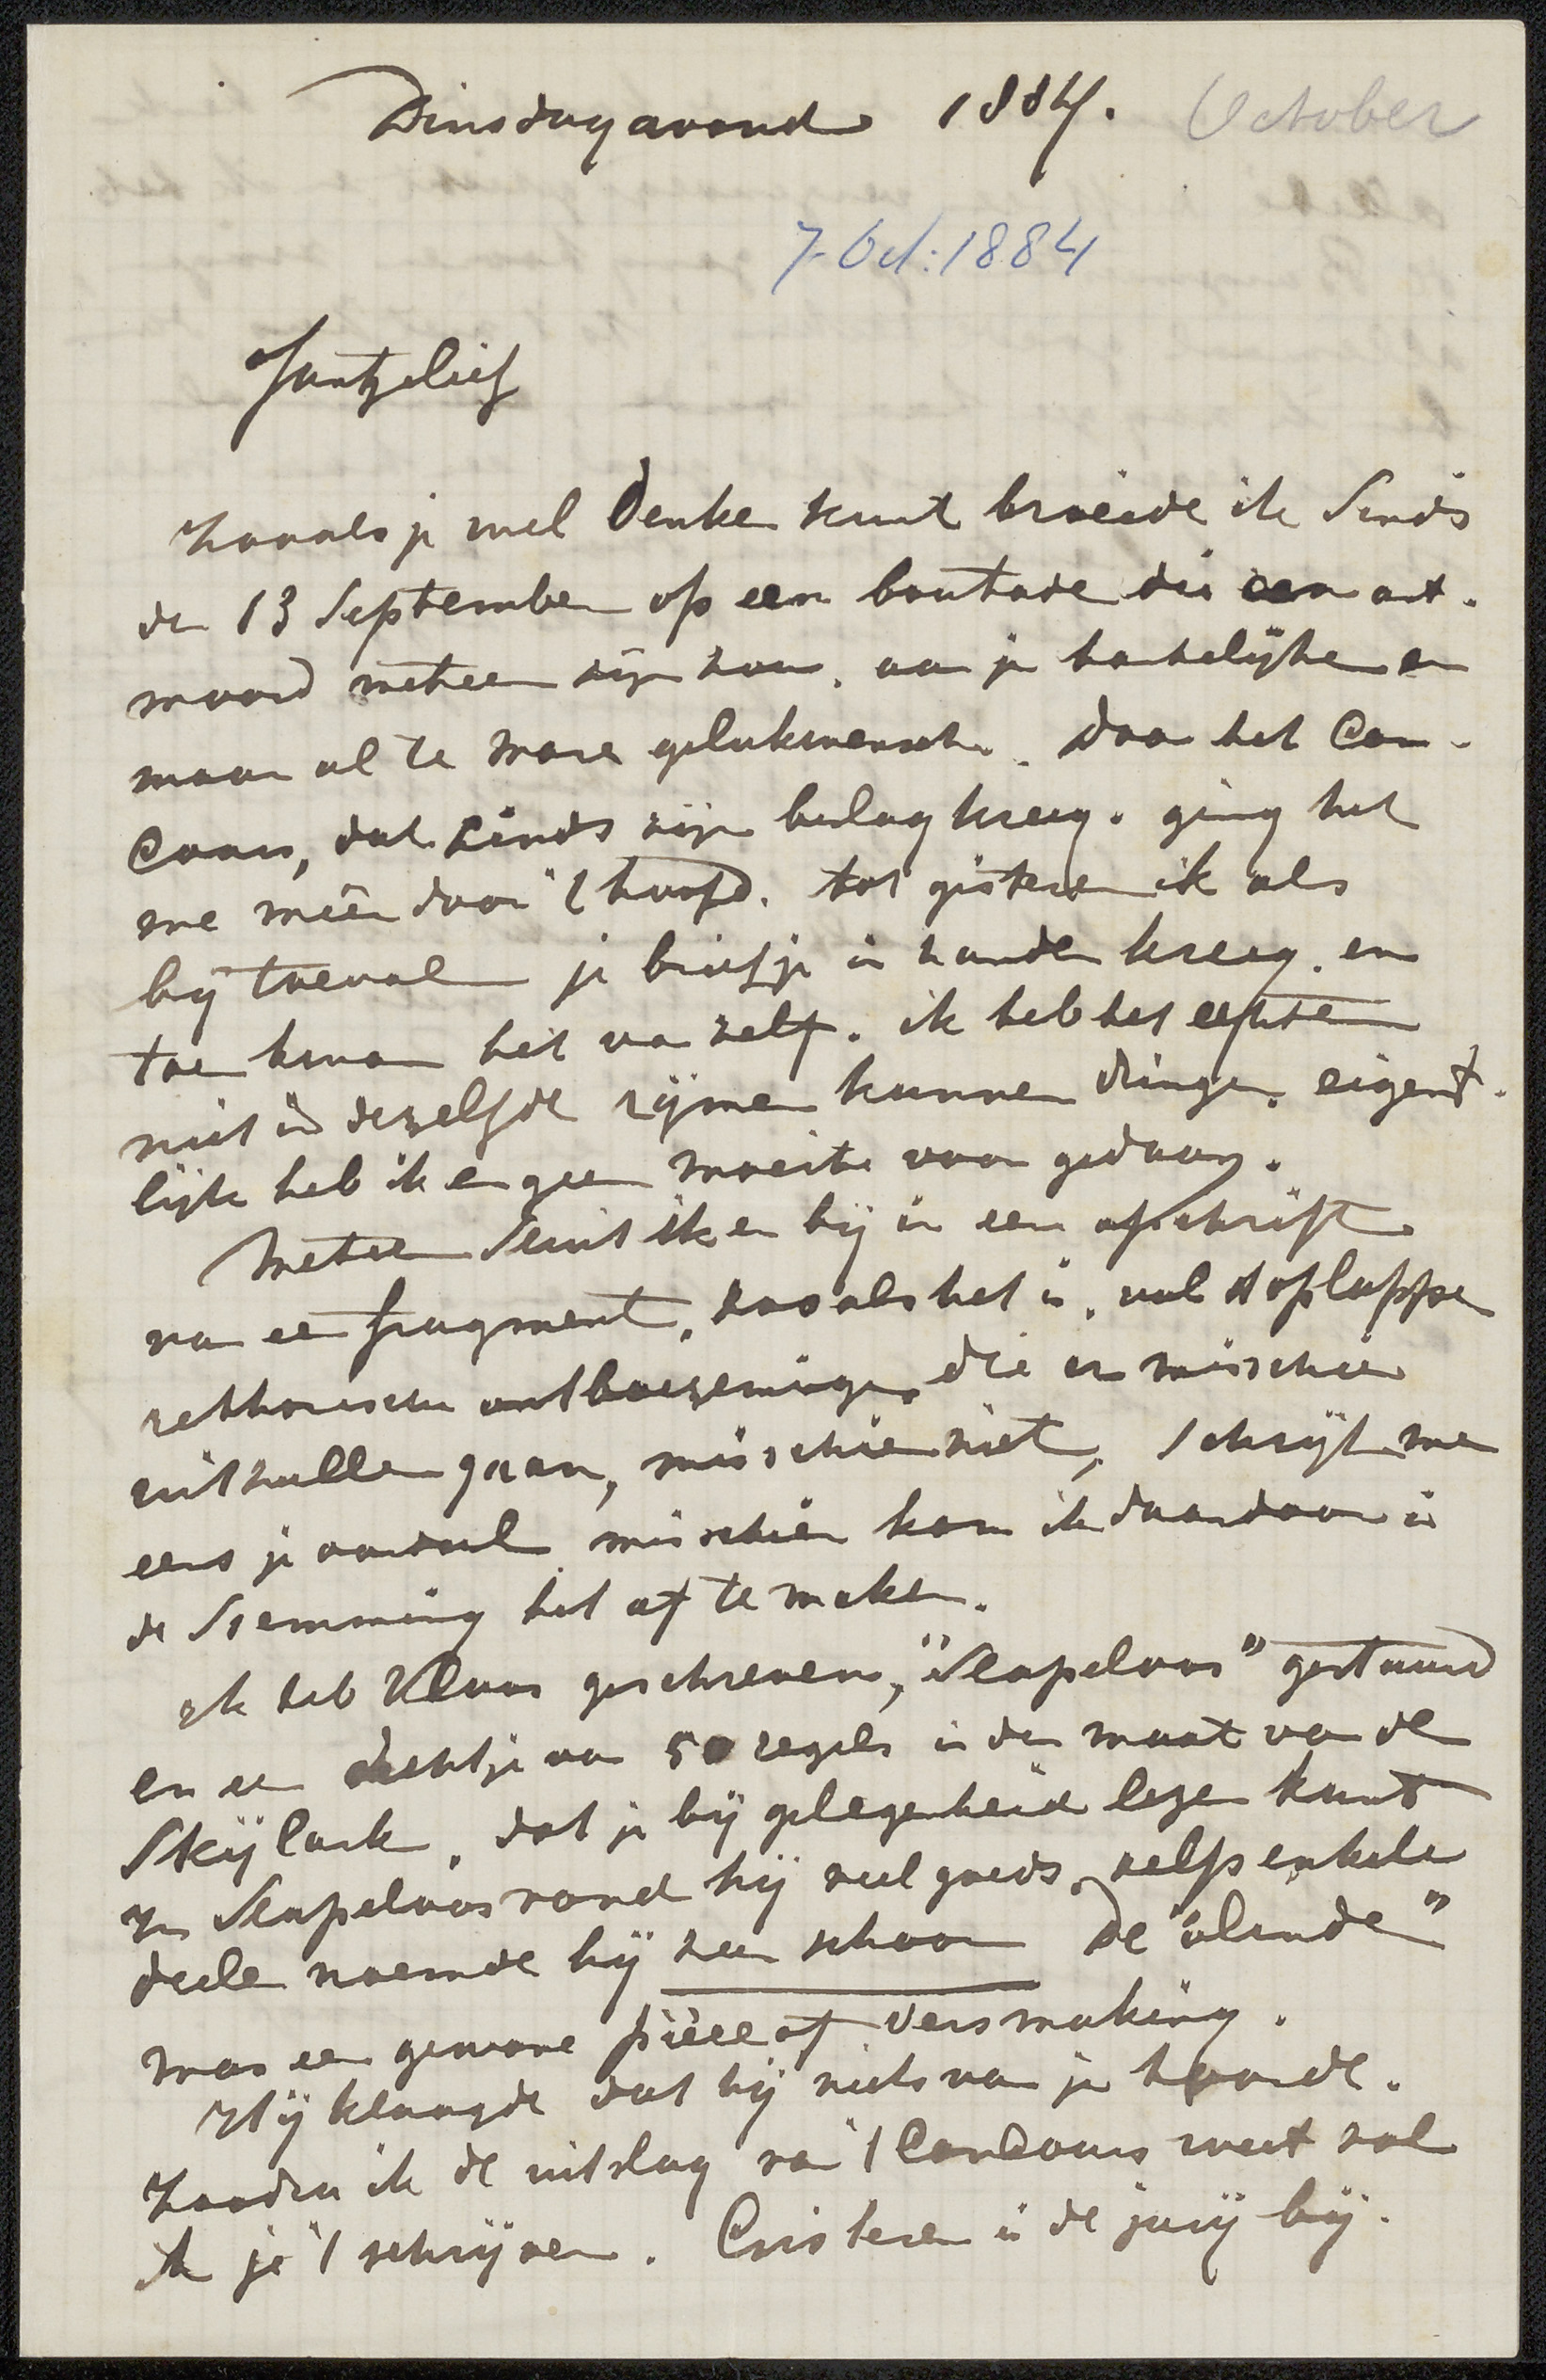 Dinsdagavond 1884. October
7 Oct: 1884
Jantzelief
Zooals je wel denken kunt broeide ik sinds
den 13 September op een boutade die een ant-
woord meteen zijn zou, aan je hartelijke en
maar al te ware gelukwensch. Door het Con-
cours, dat sinds zijn beslag kreeg, ging het
me méér door 't hoofd, tot gisteren ik als
bij toeval je briefje in handen kreeg, en
toen kwam het van zelf. ik heb het echter
niet in dezelfde rijmen kunnen dringen, eigent-
lijk heb ik er geen moeite voor gedaan.
Meteen sluit ik er bij in een afschrift
van een fragment, zooals het is, vol stoplappen
rethorische ontboezemingen, die er misschien
uitzullen gaan, misschien niet, schrijf me
eens je oordeel, misschien kom ik daardoor in
de stemming het af te maken.
Ik heb Kloos geschreven, "Slapeloos" gestuurd
en een dichtje van 50 regels in den maat van de
Skylark, dat je bij gelegenheid lezen kunt
In Slapeloos vond hij veel goeds, zelfs enkele
deelen noemde hij zeer schoon De "ellende"
was een gewone pièce of versmaking.
Hij klaagde dat hij niets van je hoorde.
Zoodra ik de uitslag van 't Concours weet zal
ik je 't schrijven. Gisteren is de jury bij-